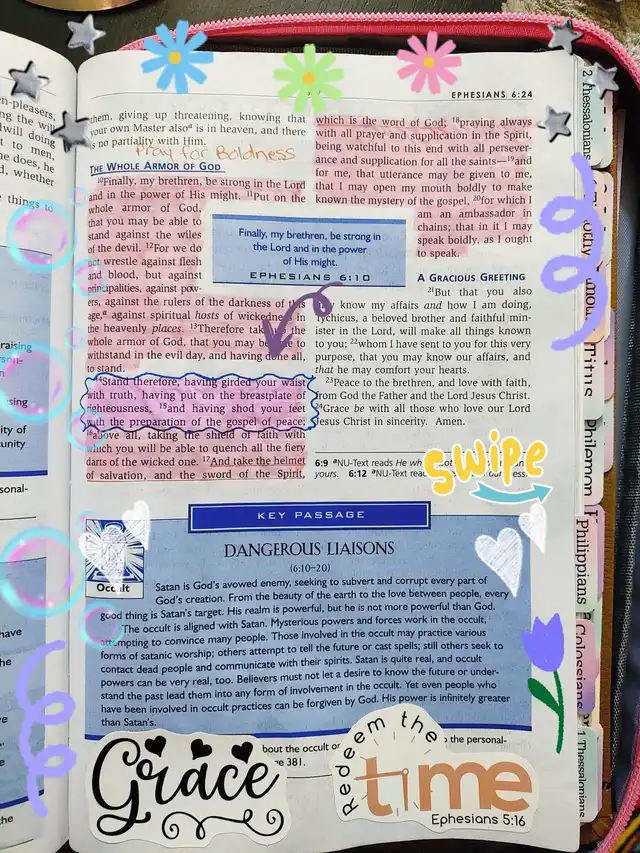 n-pleasers,
ng the will
dwill doing
t to men,
ne does, he
d, whether
things to
raising
sing
ity of
unity
sonal-
have
he
the
EPHESIANS 6:24
them, giving up threatening, knowing that
your own Master alsoᵃ is in heaven, and there
is no partiality with Him.
Pray for Boldness
THE WHOLE ARMOR OF GOD
¹⁰Finally, my brethren, be strong in the Lord
and in the power of His might. ¹¹Put on the
whole armor of God,
that you may be able to
stand against the wiles
of the devil. ¹²For we do
not wrestle against flesh
and blood, but against
principalities, against pow-
ers, against the rulers of the darkness of this
age,ᵃ against spiritual hosts of wickedness in
the heavenly places. ¹³Therefore take the
whole armor of God, that you may be able to
withstand in the evil day, and having done all,
to stand.
¹⁴Stand therefore, having girded your waist
with truth, having put on the breastplate of
righteousness, ¹⁵and having shod your feet
with the preparation of the gospel of peace;
¹⁶above all, taking the shield of faith with
which you will be able to quench all the fiery
darts of the wicked one. ¹⁷And take the helmet
of salvation, and the sword of the Spirit,
Finally, my brethren, be strong in
the Lord and in the power
of His might.
EPHESIANS 6:10
which is the word of God; ¹⁸praying always
with all prayer and supplication in the Spirit,
being watchful to this end with all persever-
ance and supplication for all the saints—¹⁹and
for me, that utterance may be given to me,
that I may open my mouth boldly to make
known the mystery of the gospel, ²⁰for which I
am an ambassador in
chains; that in it I may
speak boldly, as I ought
to speak.
A GRACIOUS GREETING
²¹But that you also
may know my affairs and how I am doing,
Tychicus, a beloved brother and faithful min-
ister in the Lord, will make all things known
to you; ²²whom I have sent to you for this very
purpose, that you may know our affairs, and
that he may comfort your hearts.
²³Peace to the brethren, and love with faith,
from God the Father and the Lord Jesus Christ.
²⁴Grace be with all those who love our Lord
Jesus Christ in sincerity. Amen.
6:9 ᵃNU-Text reads He who
yours. 6:12 ᵃNU-Text
swipe
KEY PASSAGE
Occult
DANGEROUS LIAISONS
(6:10–20)
Satan is God's avowed enemy, seeking to subvert and corrupt every part of
God's creation. From the beauty of the earth to the love between people, every
good thing is Satan's target. His realm is powerful, but he is not more powerful than God.
The occult is aligned with Satan. Mysterious powers and forces work in the occult,
attempting to convince many people. Those involved in the occult may practice various
forms of satanic worship; others attempt to tell the future or cast spells; still others seek to
contact dead people and communicate with their spirits. Satan is quite real, and occult
powers can be very real, too. Believers must not let a desire to know the future or under-
stand the past lead them into any form of involvement in the occult. Yet even people who
have been involved in occult practices can be forgiven by God. His power is infinitely greater
than Satan's.
bout the occult or the personal-
381.
Grace
Redeem the
time
Ephesians 5:16
2 Thessalonians
Titus
Philemon
Philippians
Colossians
1 Thessalonians